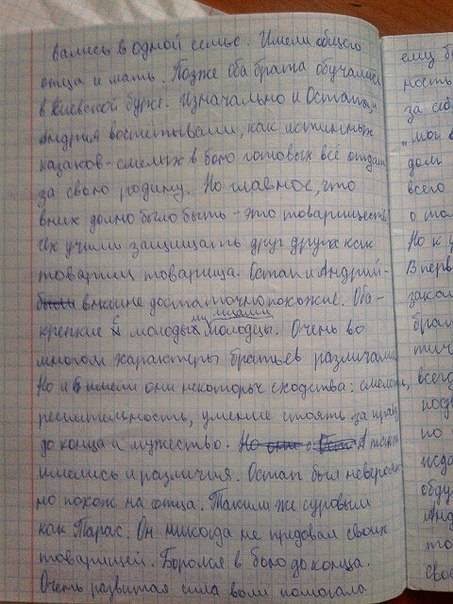 вались в одной семье. Имели общего
отца и мать. Позже оба брата обучались
в Киевской бурже. Изначально и Остапа, и
Андрия воспитывали, как истинных
казаков-смелых в бою готовых всё отдать
за свою родину. Но главное, что
в них должно было быть - это товарищество
Их учили защищать друг друга как
товарищ товарища. Остап и Андрий-
были внешне достаточно похожие. Оба-
крепкие с молодыми лицами молодцы. Очень во
многом характеры братьев различались
Но и имели они некоторых сходства: смелость,
решительность, умение стоять за правду
до конца и мужество. Но они А также
имелись и различия. Остап был невероят-
но похож на отца. Таким же суровым
как Тарас. Он никогда не предавал своих
товарищей. Боролся в бою до конца.
Очень развитая сила воли помогала
ему бр
ность
за себ
"мои
долг
всего
о том
Но к у
В перв
закал
брат
тич
всегд
подв
по
жда
обду
Анд
то
свое